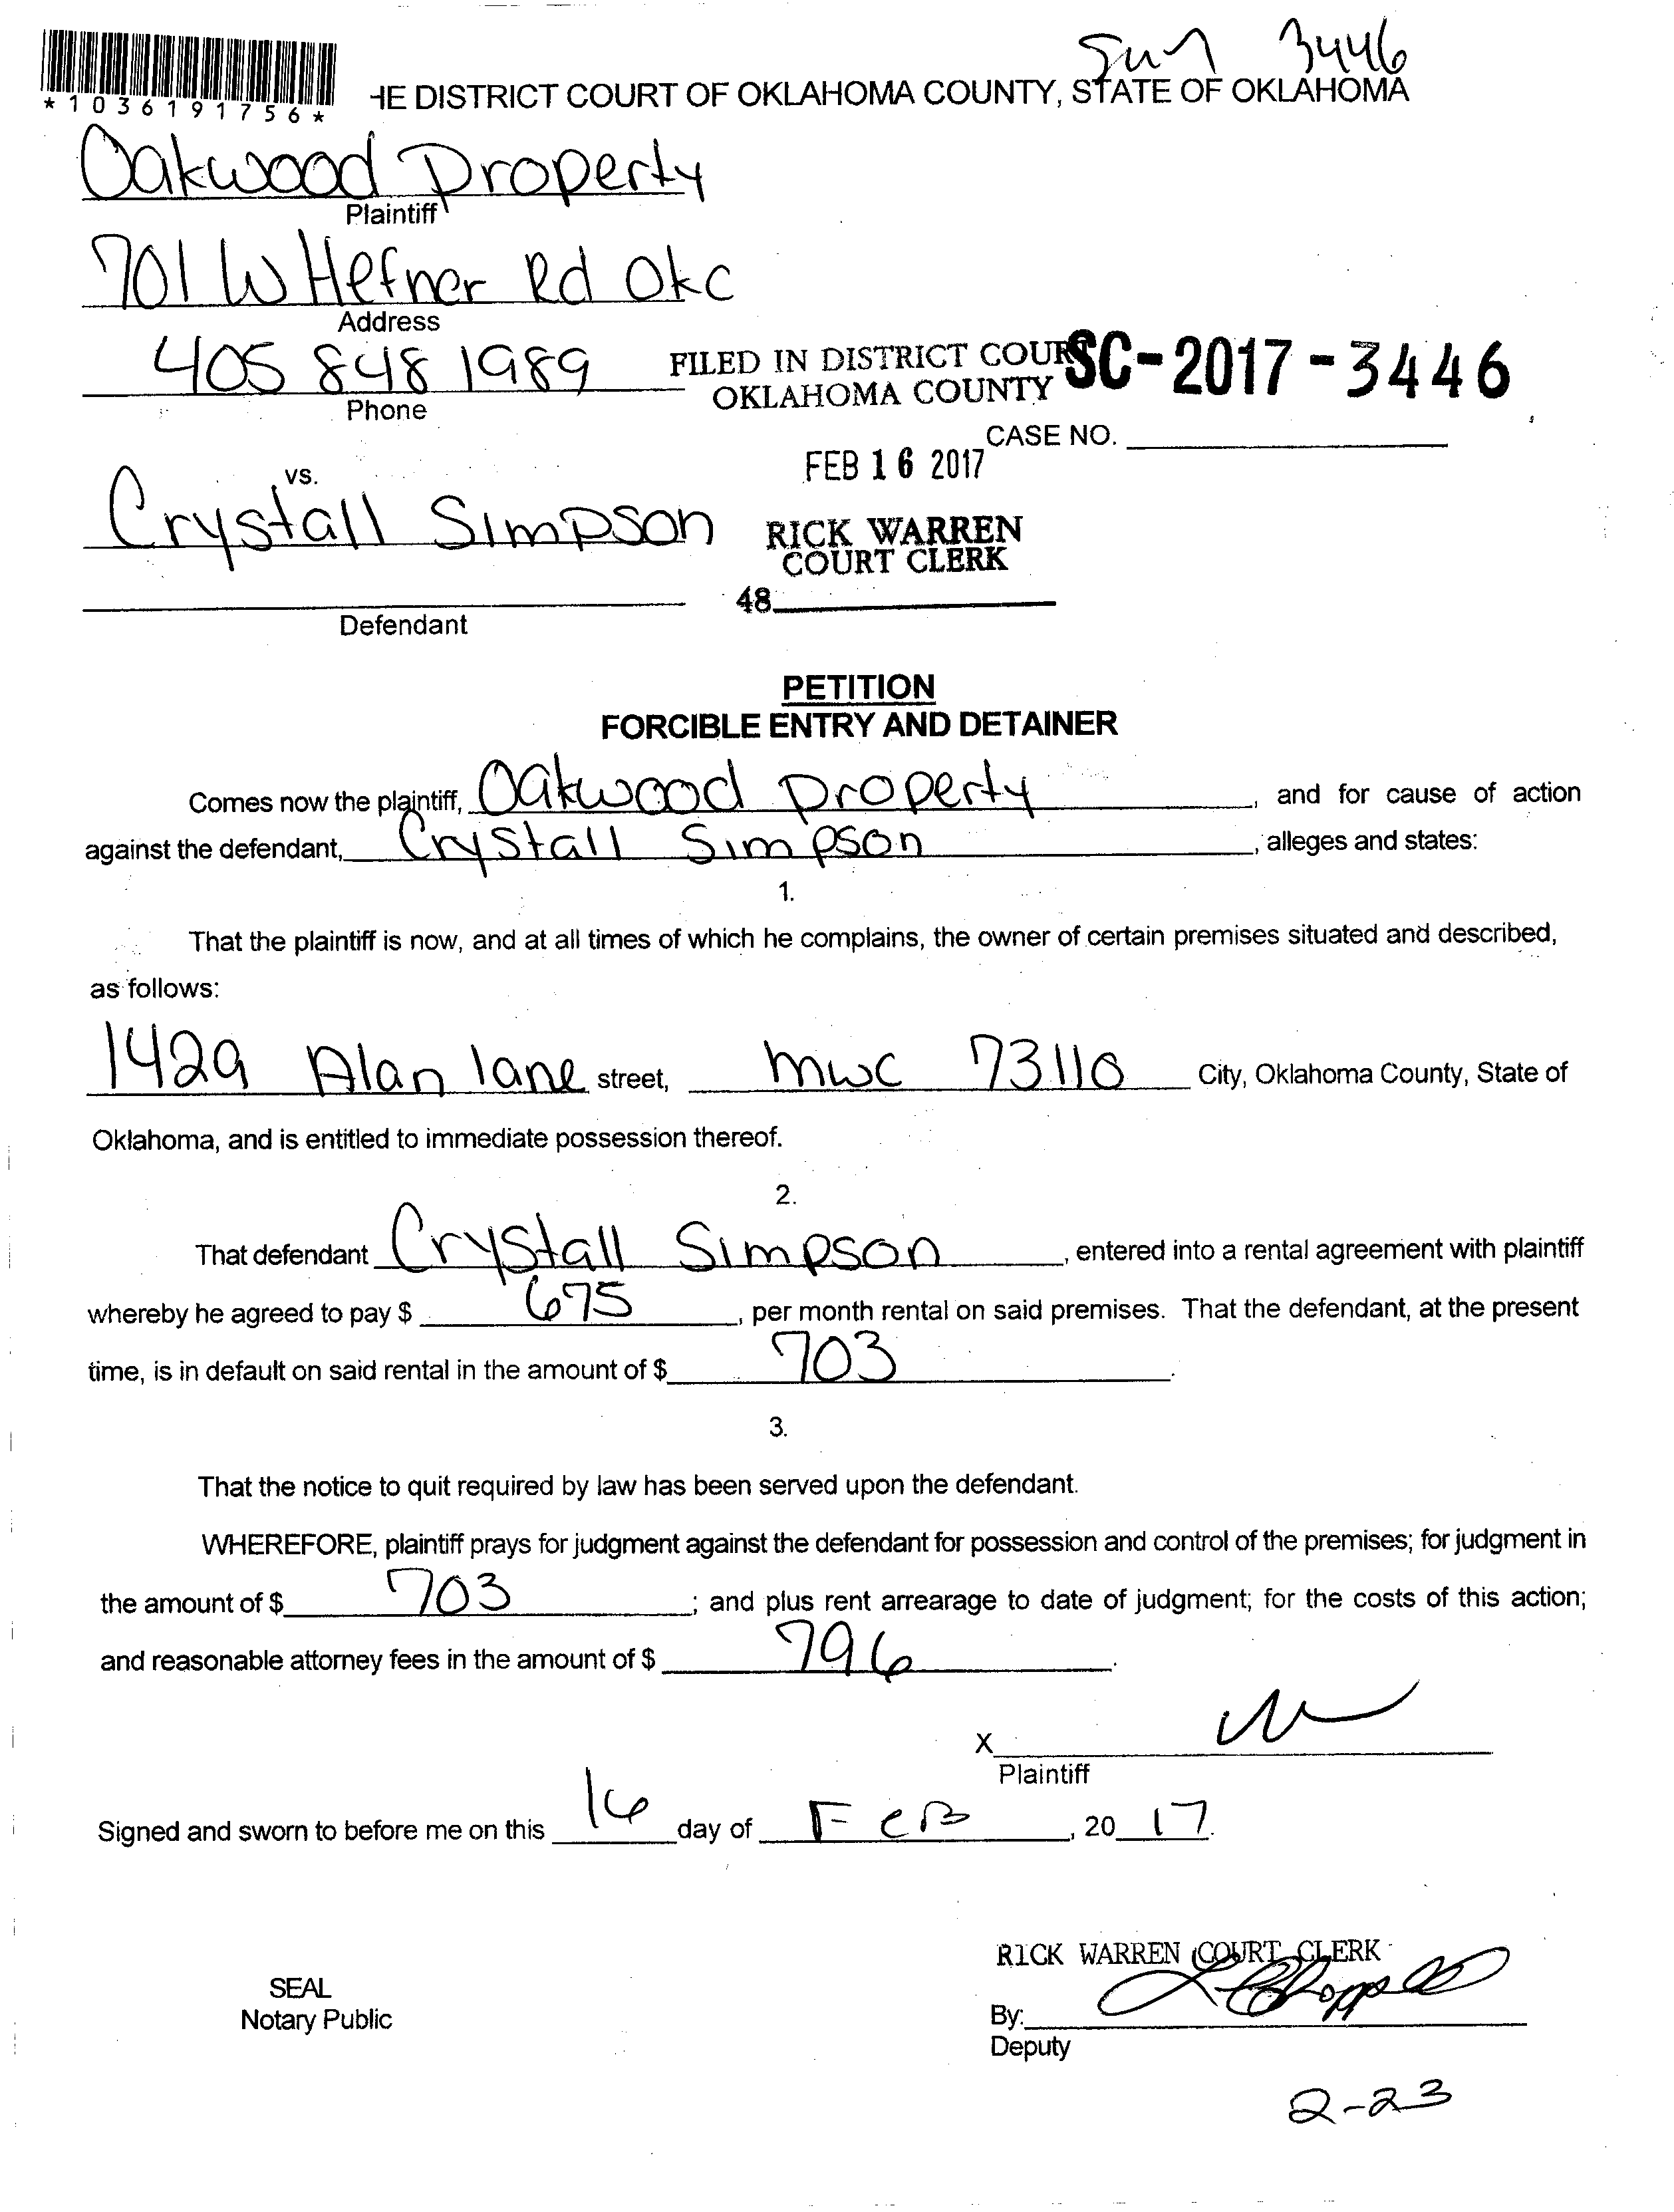 Sun 3446
*1036191756*
HE DISTRICT COURT OF OKLAHOMA COUNTY, STATE OF OKLAHOMA
Oakwood Property
Plaintiff
701 W Hefner Rd Okc
Address
405 848 1989
Phone
FILED IN DISTRICT COURT
OKLAHOMA COUNTY
SC-2017-3446
CASE NO.
FEB 16 2017
vs.
Crystall Simpson
RICK WARREN
COURT CLERK
48
Defendant
PETITION
FORCIBLE ENTRY AND DETAINER
Comes now the plaintiff, Oakwood Property, and for cause of action
against the defendant, Crystall Simpson, alleges and states:
1.
That the plaintiff is now, and at all times of which he complains, the owner of certain premises situated and described,
as follows:
1429 Alan lane street, mwc 73110 City, Oklahoma County, State of
Oklahoma, and is entitled to immediate possession thereof.
2.
That defendant Crystall Simpson, entered into a rental agreement with plaintiff
whereby he agreed to pay $ 675, per month rental on said premises. That the defendant, at the present
time, is in default on said rental in the amount of $ 703.
3.
That the notice to quit required by law has been served upon the defendant.
WHEREFORE, plaintiff prays for judgment against the defendant for possession and control of the premises; for judgment in
the amount of $ 703; and plus rent arrearage to date of judgment; for the costs of this action;
and reasonable attorney fees in the amount of $ 796.
X
Plaintiff
Signed and sworn to before me on this 16 day of FeB, 2017.
RICK WARREN COURT CLERK
SEAL
Notary Public
By:
Deputy
2-23